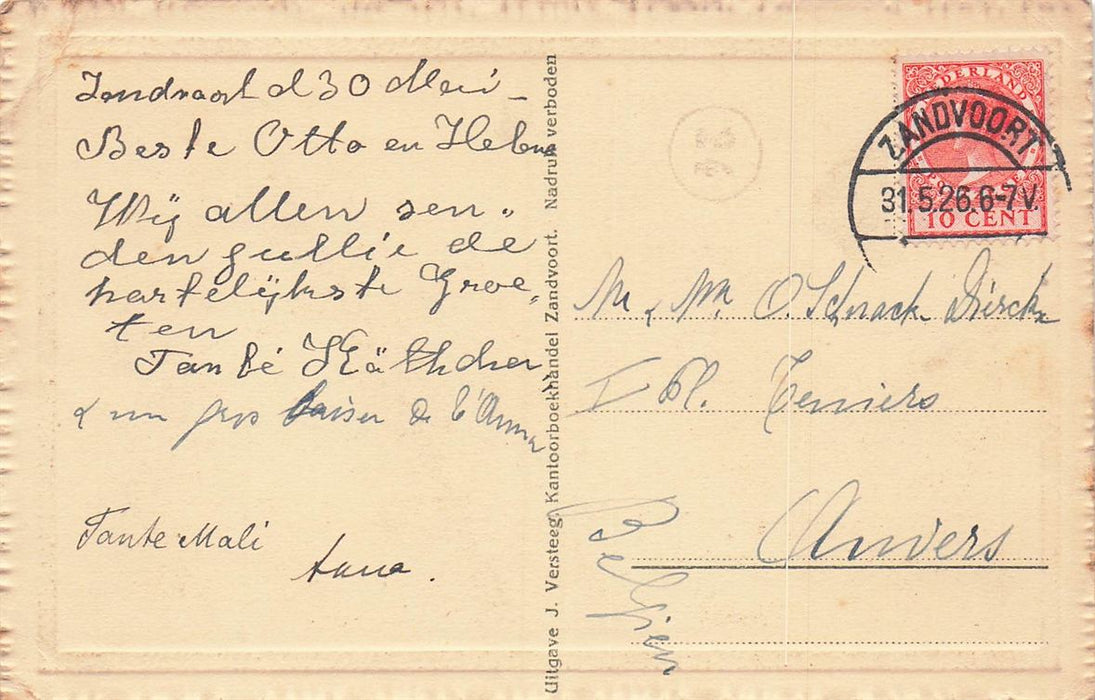 Zandvoort d 30 Mei -
Beste Otto en Helene
Wij allen sen„
den jullie de
hartelijkste Groe„
ten
Tanbé Käthchen
& un gros baiser de l'Anna
Tante Mali
Anna.
Uitgave J. Versteeg, Kantoorboekhandel Zandvoort. Nadruk verboden
NEDERLAND
10 CENT
ZANDVOORT
31.5.26.6-7V.
M & Mm O. Schnack Dierckx
I Pl. Teniers
Anvers
Belgien